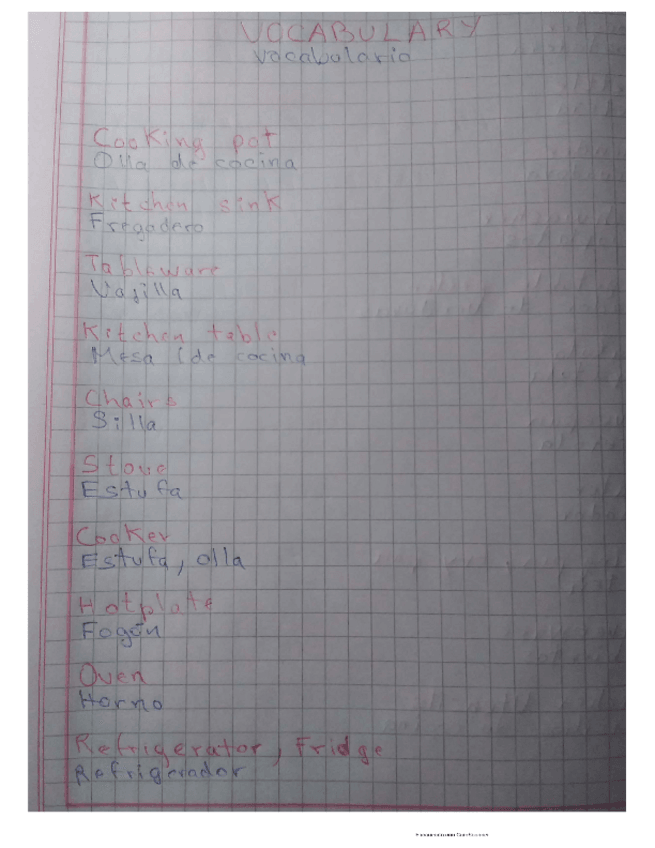 VOCABULARY
Vocabulario
Cooking pot
Olla de cocina
Kitchen sink
Fregadero
Tableware
Vasilla
Kitchen table
Mesa (de cocina
Chairs
Silla
Stove
Estufa
Cooker
Estufa, olla
Hotplate
Fogón
Oven
Horno
Refrigerator, Fridge
Refrigerador